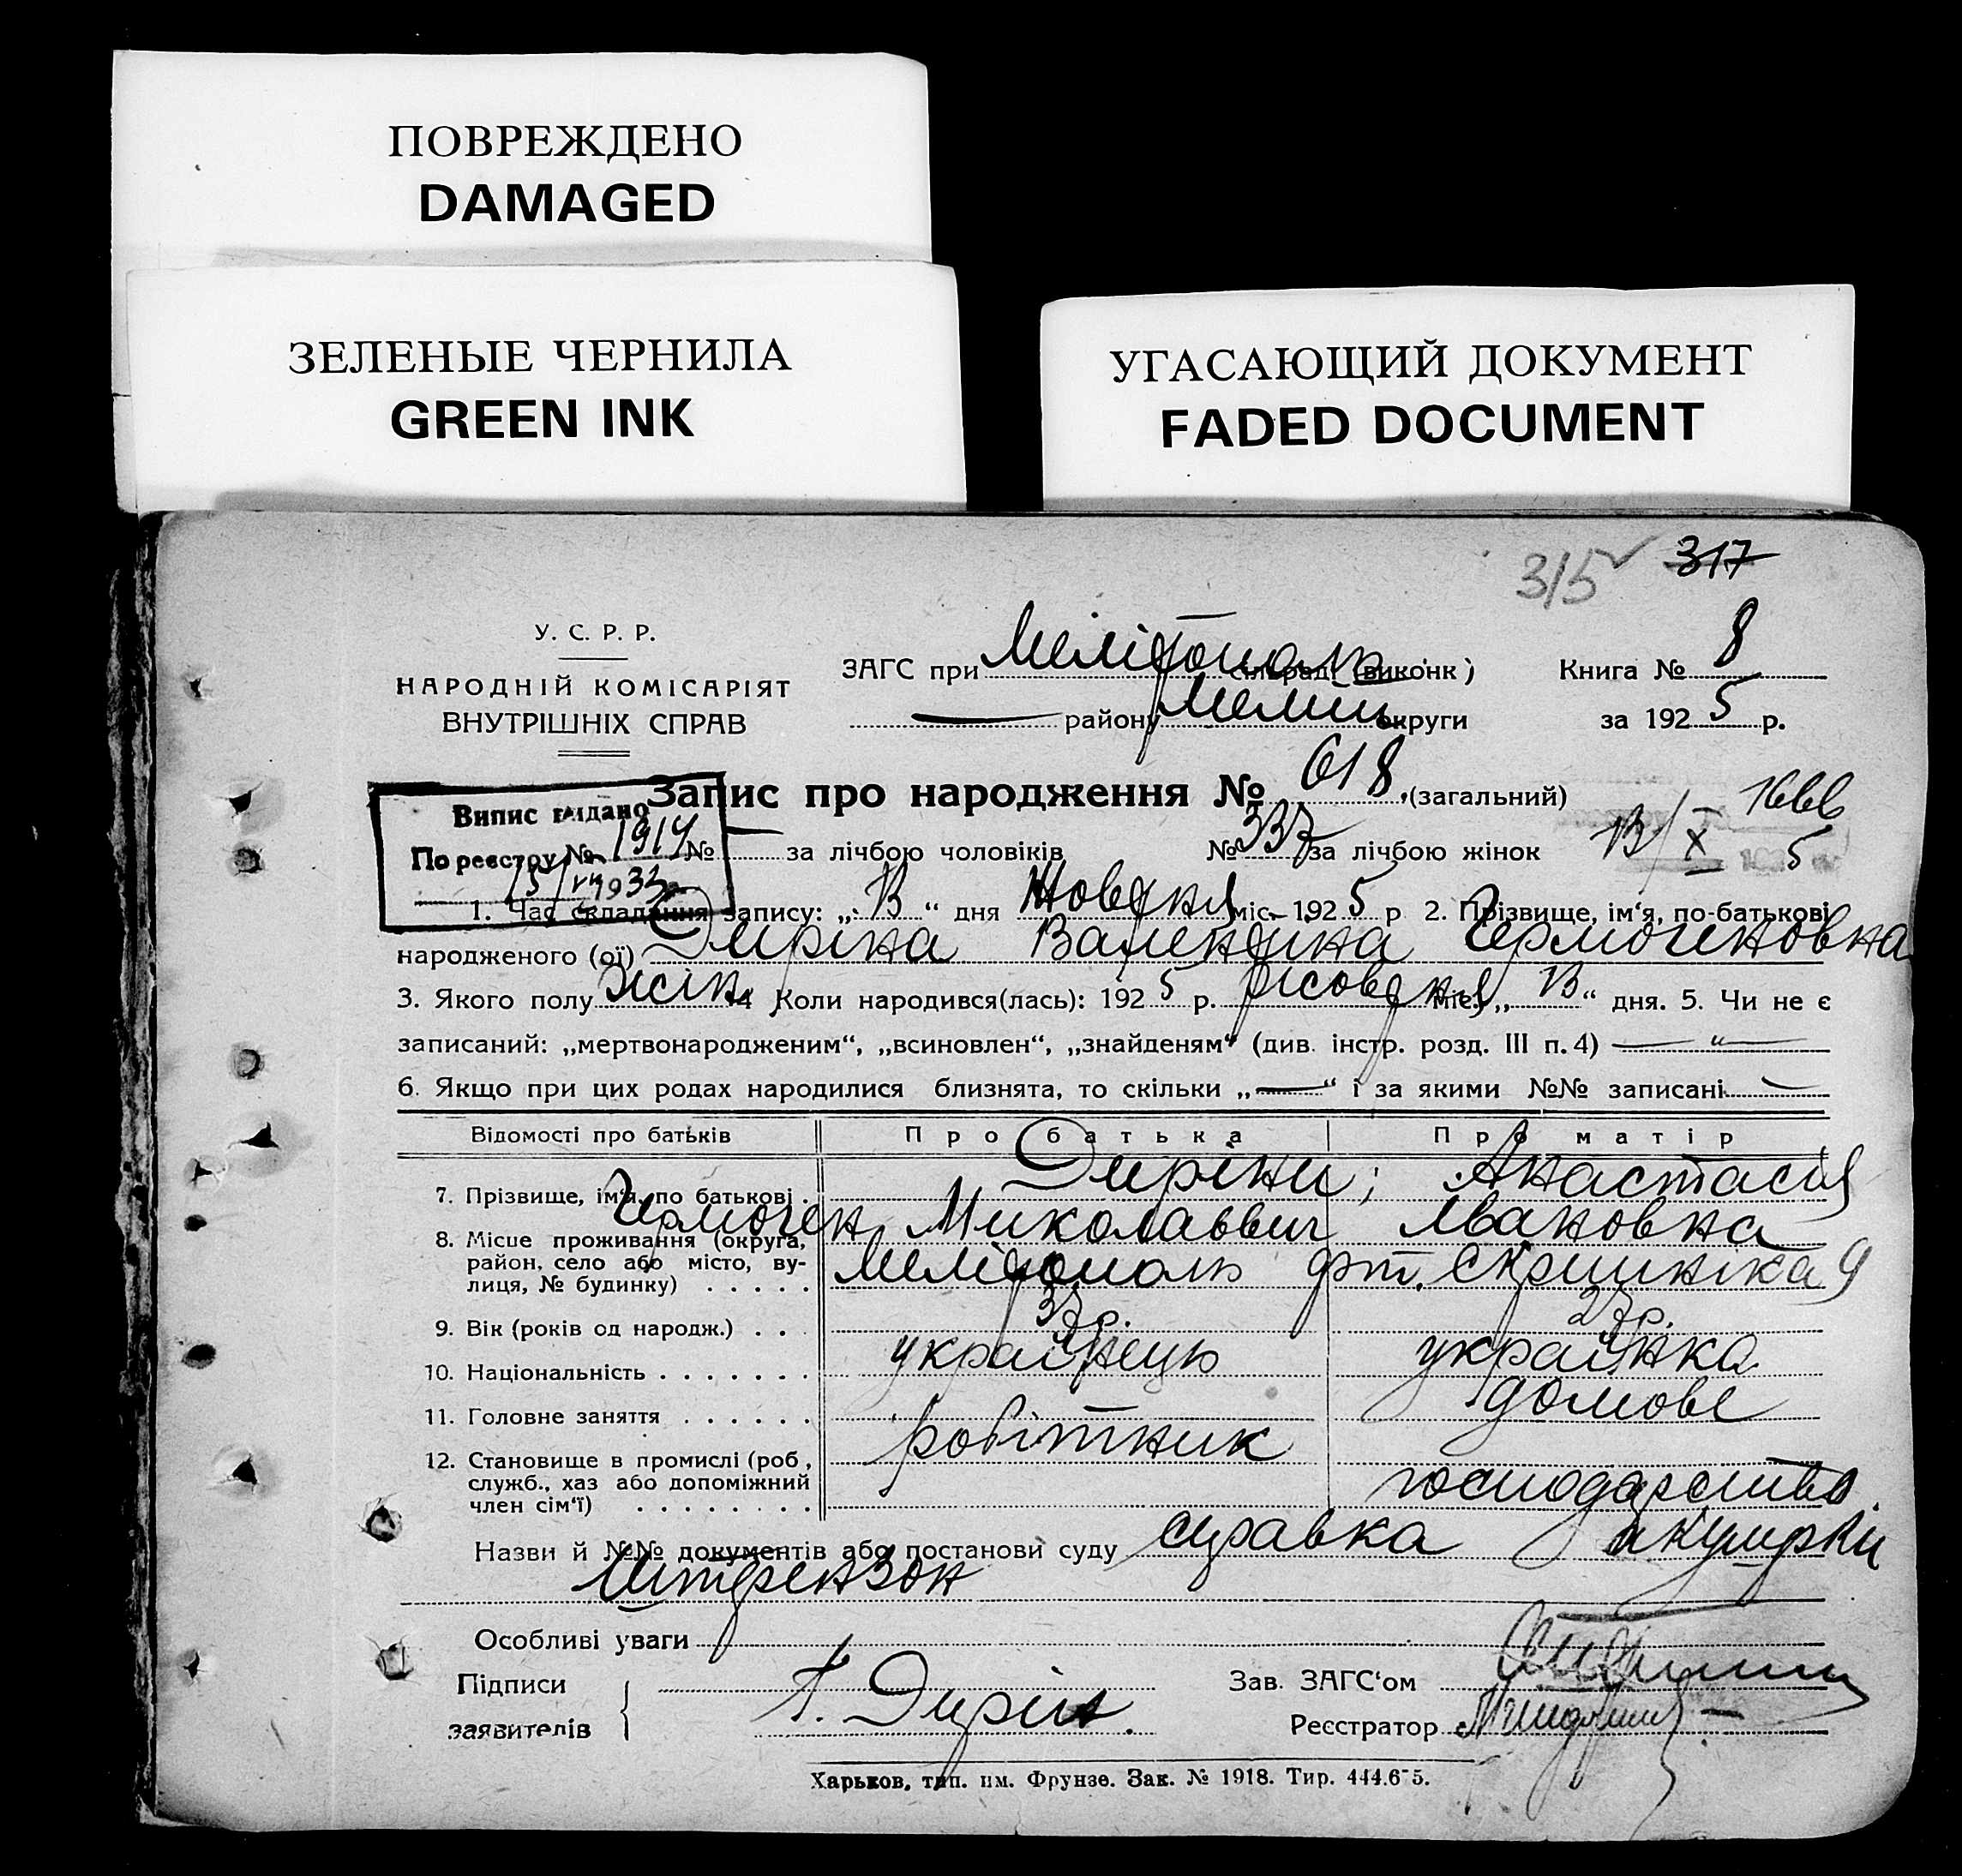 ПОВРЕЖДЕНО
DAMAGED
ЗЕЛЕНЫЕ ЧЕРНИЛА
GREEN INK
УГАСАЮЩИЙ ДОКУМЕНТ
FADED DOCUMENT
315 317
У. С. Р. Р.
НАРОДНІЙ КОМІСАРІЯТ
ВНУТРІШНІХ СПРАВ
ЗАГС при Мелітополь сільраді (виконк) Книга № 8
— району Мелит округи за 1925 р.
Запис про народження № 618 (загальний)
Випис видано
По реєстру № 1914
15/VII 1933
№ — за лічбою чоловіків № 337 за лічбою жінок
13/X 5
1. Час складання запису: „13“ дня Жовтня міс. 1925 р 2. Прізвище, ім‘я, по-батькові
народженого (ої) Диріна Валентина Гермогеновна
3. Якого полу жін. 4 Коли народився(лась): 1925 р. жовтня міс. „13“ дня. 5. Чи не є
записаний: „мертвонародженим“, „всиновлен“, „знайденям“ (див. інстр. розд. III п. 4) — „ —
6. Якщо при цих родах народилися близнята, то скільки „—“ і за якими №№ записані —
Відомості про батьків Про батька Про матір
7. Прізвище, ім‘я, по батькові Диріни; Анастасія
Гермоген Миколаєвич Івановна
8. Місце проживання (округа, район, село або місто, вулиця, № будинку) Мелітополь Скрипніка 9
9. Вік (років од народж.) 37 р. 27 р.
10. Національність українець українка
11. Головне заняття робітник домове
12. Становище в промислі (роб, служб., хаз або допоміжний член сім‘ї) господарство.
Назви й №№ документів або постанови суду справка акушерки
Особливі уваги
Підписи
заявителів Г. Дирін.
Зав. ЗАГС‘ом
Реєстратор
Харьков, тип. им. Фрунзе. Зак. № 1918. Тир. 444.6-5.